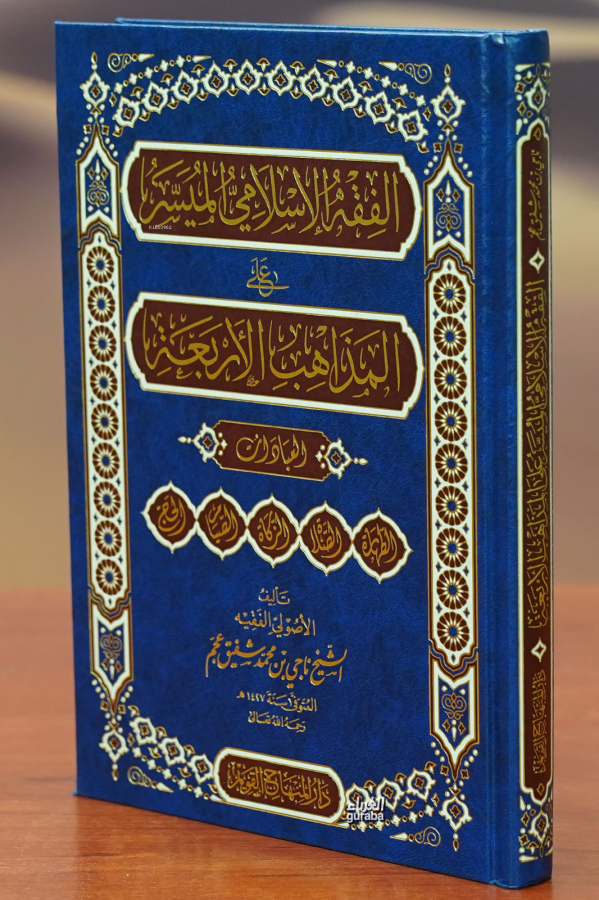 الفِقْهُ الإِسْلَامِيُّ المُيَسَّرُ
عَلَى
المَذَاهِبِ الأَرْبَعَةِ
العِبَادَات
الطهارة الصلاة الزكاة الصيام الحج
تأليف
الأصولي الفقيه
الشيخ ناجي بن محمد شفيق عجم
المتوفى سنة ١٤٢٧ هـ
رحمه الله تعالى
دار المنهاج القويم
الغرباء
guraba
ناجي بن محمد شفيق عجم
الفقه الإسلامي الميسر على المذاهب الأربعة
دار المنهاج القويم